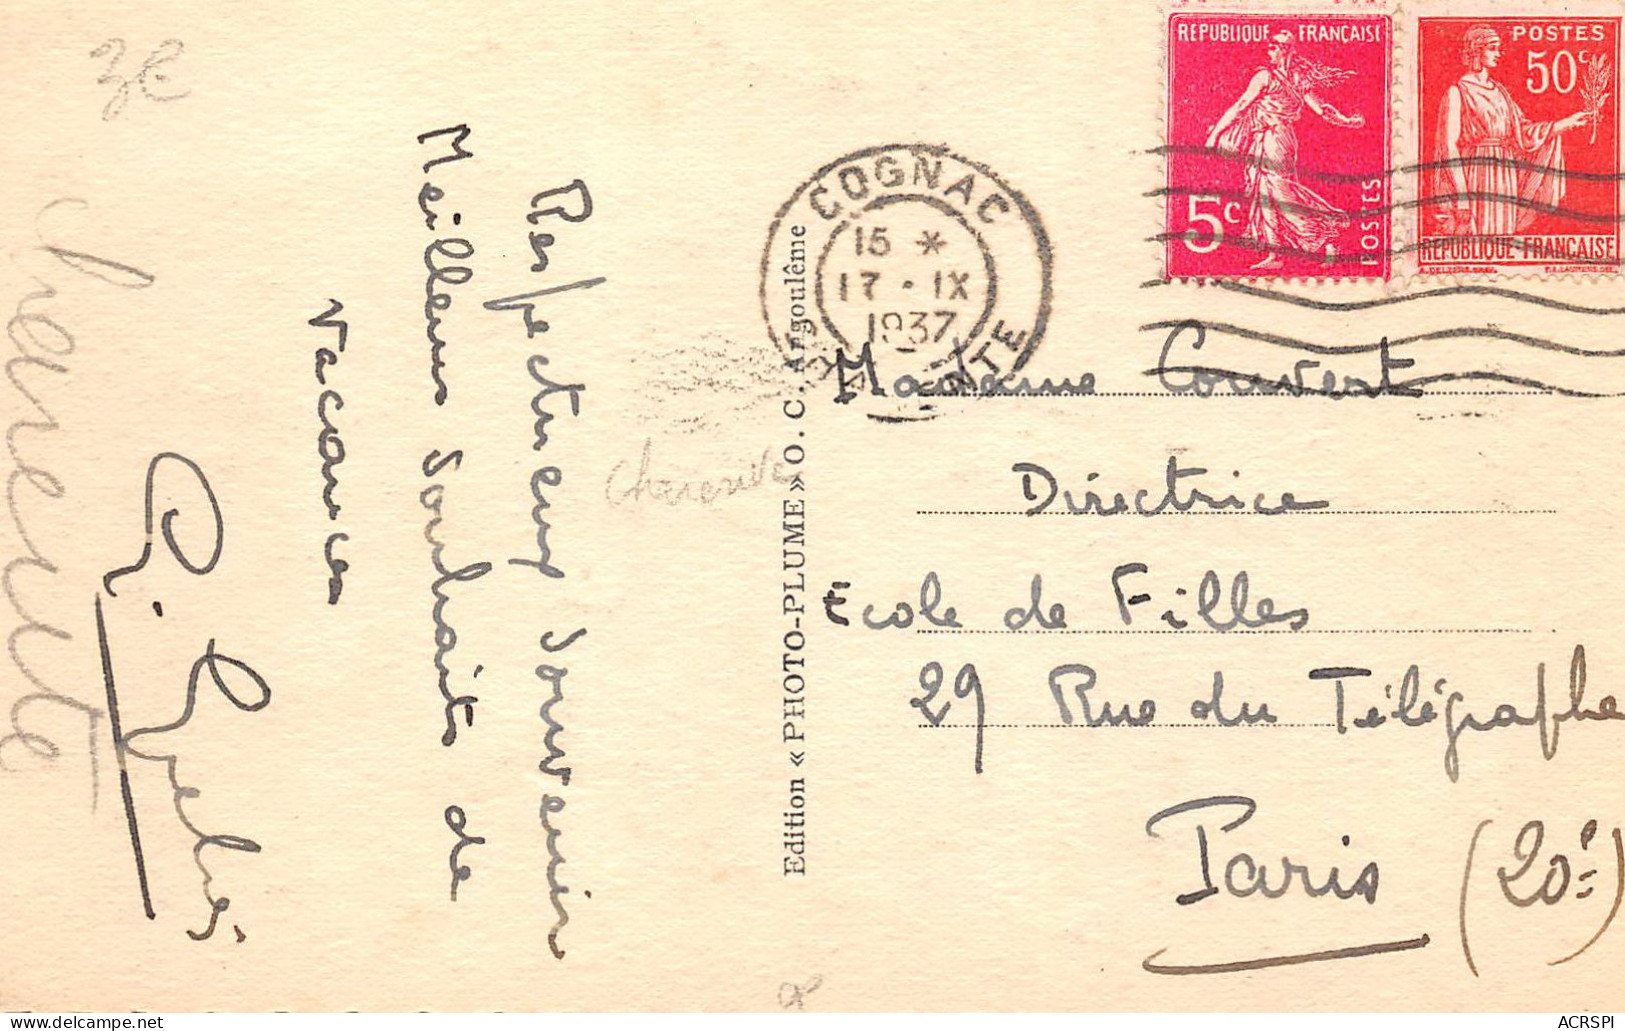 3€
Charente
Respectueux Souvenir
Meilleurs Souhaits de
Vacances
Charente
Edition « PHOTO-PLUME » O. C., Angoulême
COGNAC
15 *
17 - IX
1937
CHARENTE
REPUBLIQUE FRANÇAISE
5c
POSTES
POSTES
50c
REPUBLIQUE-FRANÇAISE
Madame Couvert
Directrice
École de Filles
29 Rue du Télégraphe
Paris (20e)
ACRSPI